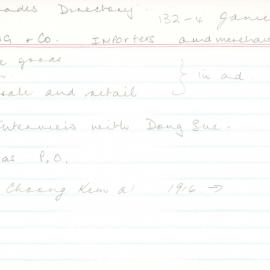 ades Directory. 132-4
G & CO. IMPORTERS and merchan
e goods
sale and retail } in ad.
Interview with Dong Sue.
as P.O.
Choong Kem a' 1916 →